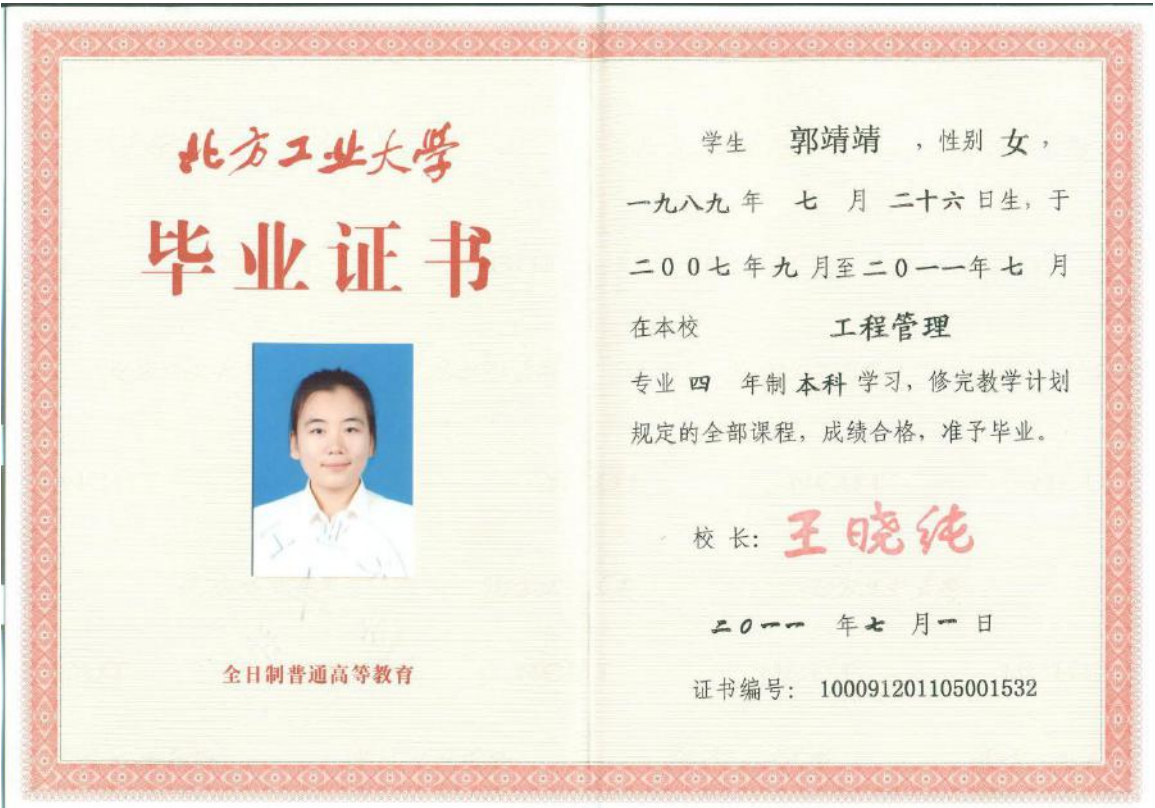 北方工业大学
毕业证书
全日制普通高等教育
学生 郭靖靖 ，性别 女，
一九八九年 七 月 二十六日生，于
二００七年九月至二０一一年七 月
在本校 工程管理
专业 四 年制本科学习，修完教学计划
规定的全部课程，成绩合格，准予毕业。
校 长：王晓纯
二０一一 年七 月一 日
证书编号： 100091201105001532